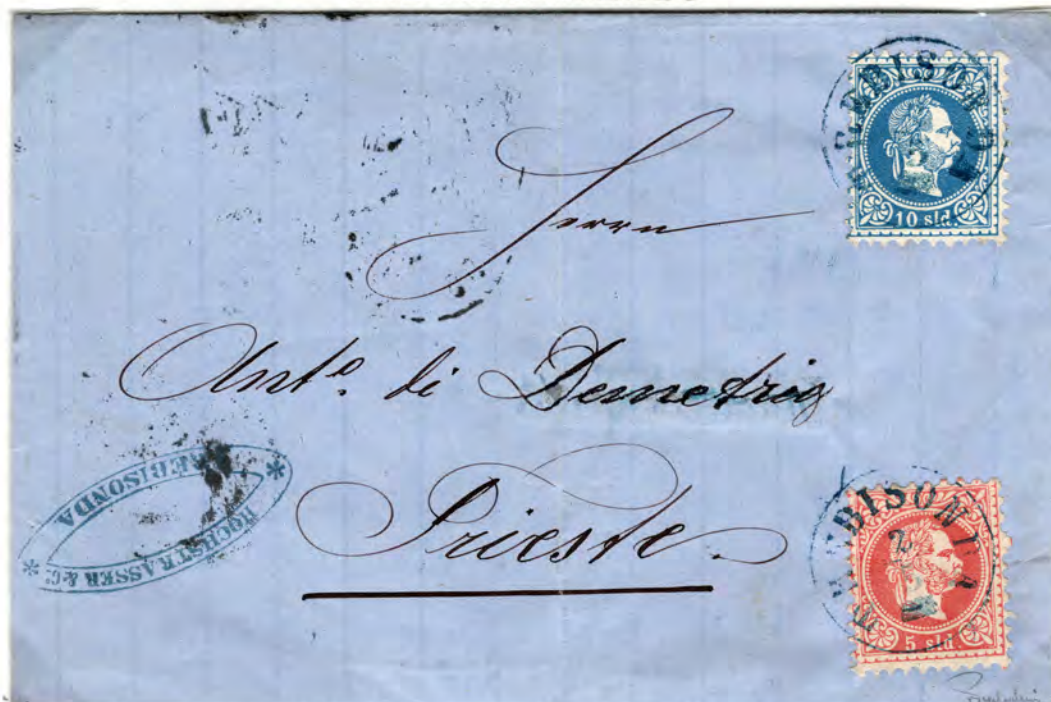 TREBISONDA
10 sld.
Herrn
Antº. di Demetrio
Trieste.
HOCHSTRASSER & Cº
TREBISONDA
TREBISONDA
5 sld.